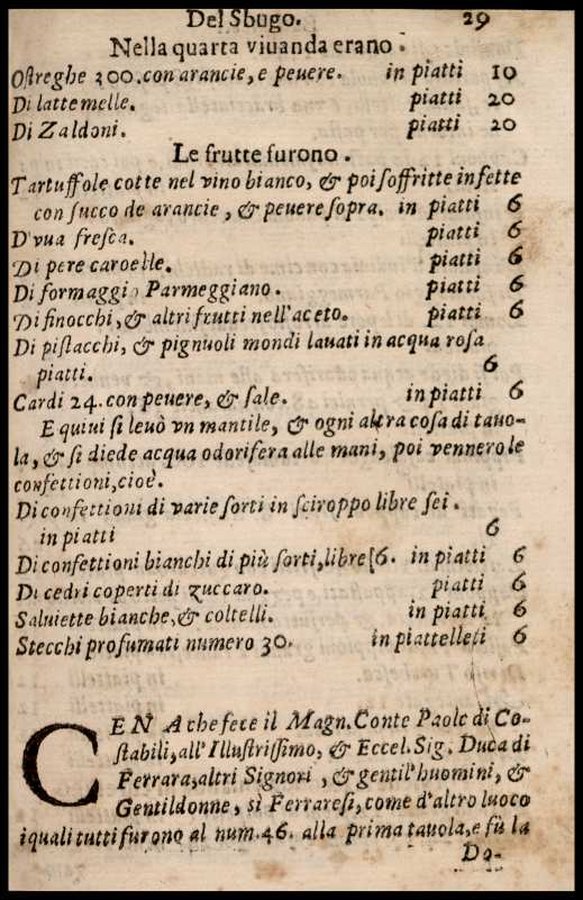 Del Sbugo. 29
Nella quarta viuanda erano.
Ostreghe 300. con arancie, e peuere. in piatti 10
Di lattemelle. piatti 20
Di Zaldoni. piatti 20
Le frutte furono.
Tartuffole cotte nel vino bianco, & poi soffritte in fette
con succo de arancie, & peuere sopra. in piatti 6
D'vua fresca. piatti 6
Di pere caroelle. piatti 6
Di formaggio Parmeggiano. piatti 6
Di finocchi, & altri frutti nell'aceto. piatti 6
Di pistacchi, & pignuoli mondi lauati in acqua rosa
piatti. 6
Cardi 24. con peuere, & sale. in piatti 6
E quiui si leuò vn mantile, & ogni altra cosa di tauo-
la, & si diede acqua odorifera alle mani, poi vennero le
confettioni, cioè.
Di confettioni di varie sorti in sciroppo libre sei.
in piatti 6
Di confettioni bianchi di più sorti, libre [6. in piatti 6
Di cedri coperti di zuccaro. piatti 6
Saluiette bianche, & coltelli. in piatti 6
Stecchi profumati numero 30. in piattelleti 6
CENA che fece il Magn. Conte Paolo di Co-
stabili, all'Illustrissimo, & Eccel. Sig. Duca di
Ferrara, altri Signori, & gentil'huomini, &
Gentildonne, sì Ferraresi, come d'altro luoco
i quali tutti furono al num. 46. alla prima tauola, e fù la
Do-